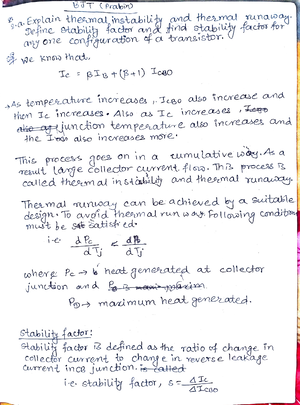 BJT (Probin)
Q.a. Explain thermal instability and thermal runaway.
Define stability factor and find stability factor for
any one configuration of a transistor.
we know that,
Ic = βIB + (β+1) ICBO
As temperature increases, ICBO also increase and
then Ic increases. Also as Ic increases,
junction temperature also increases and
the also increases more.
This process goes on in a cumulative way. As a
result large collector current flow. This process is
called thermal instability and thermal runaway.
Thermal runway can be achieved by a suitable
design. To avoid thermal run way following condition
must be satisfied.
i.e. dPc/dTj < dPD/dTj
where Pc → heat generated at collector
junction and
PD → maximum heat generated.
Stability factor:
Stability factor is defined as the ratio of change in
collector current to change in reverse leakage
current in junction. is called
i.e. stability factor, S = ΔIc/ΔICBO